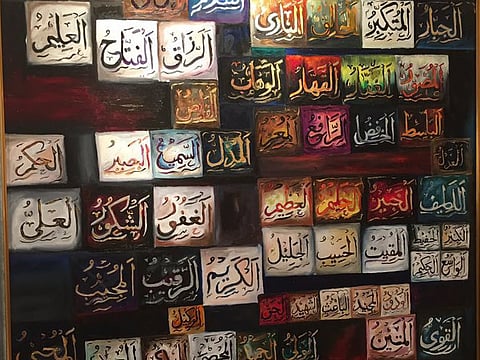 الجبار المتكبر الخالق البارئ
العليم الفتاح الرزاق
الوهاب القهار الغفار المصور
القابض
المعز الرافع الخافض الباسط
الحكم البصير السميع المذل
العدل
العلي الشكور الغفور
العظيم الحليم الخبير اللطيف
الجليل الحسيب المقيت
الكبير الحفيظ
المجيب الرقيب الكريم
الواسع الحكيم
الباعث المجيد الودود
الوكيل
المتين القوي
الولي